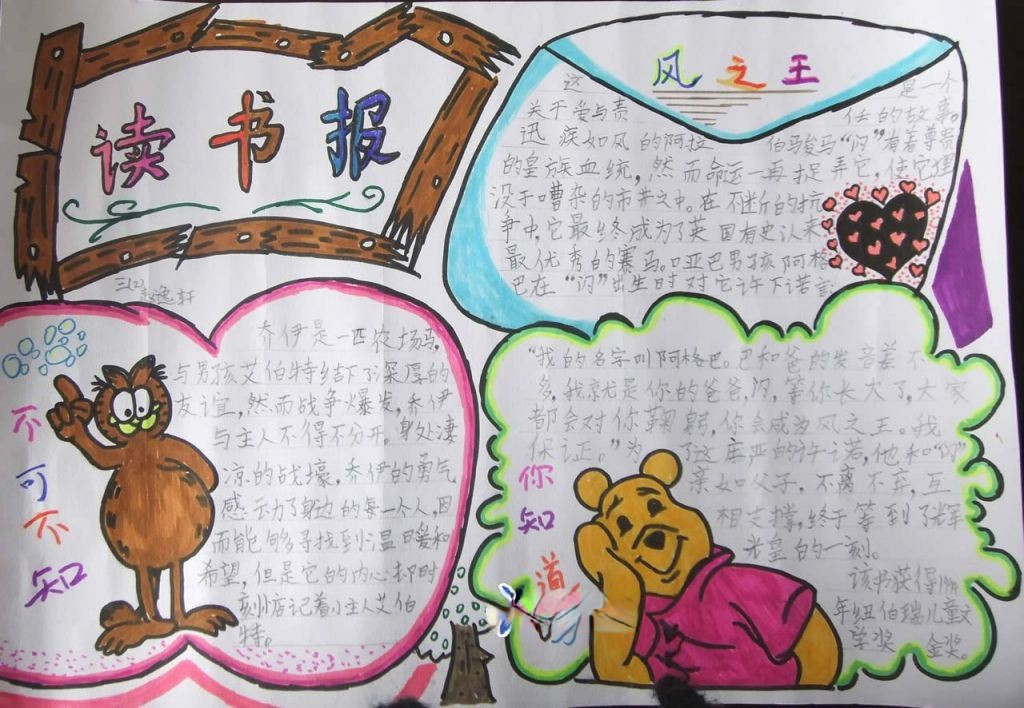 读书报
三(2)
风之王
这是一个
关于爱与责任的故事。
迅疾如风的阿拉伯骏马“闪”有着尊贵
的皇族血统，然而命运一再捉弄它，使它埋
没于嘈杂的市井之中。在不断的抗
争中，它最终成为了英国有史以来
最优秀的赛马。哑巴男孩阿格
巴在“闪”出生时对它许下诺言
乔伊是一匹农场马，
与男孩艾伯特结下了深厚的
友谊，然而战争爆发，乔伊
与主人不得不分开。身处凄
凉的战壕，乔伊的勇气
感动了身边的每一个人，因
而能够寻找到温暖和
希望，但是它的内心却时
刻惦记着小主人艾伯
特。
不可不知
“我的名字叫阿格巴。巴和爸的发音差不
多，我就是你的爸爸，闪，等你长大了，大家
都会对你鞠躬，你会成为风之王。我
保证。”为了这庄严的许诺，他和“闪”
亲如父子，不离不弃，互
相支撑，终于等到了辉
煌的一刻。
该书获得1949
年纽伯瑞儿童文
学奖金奖。
你知道